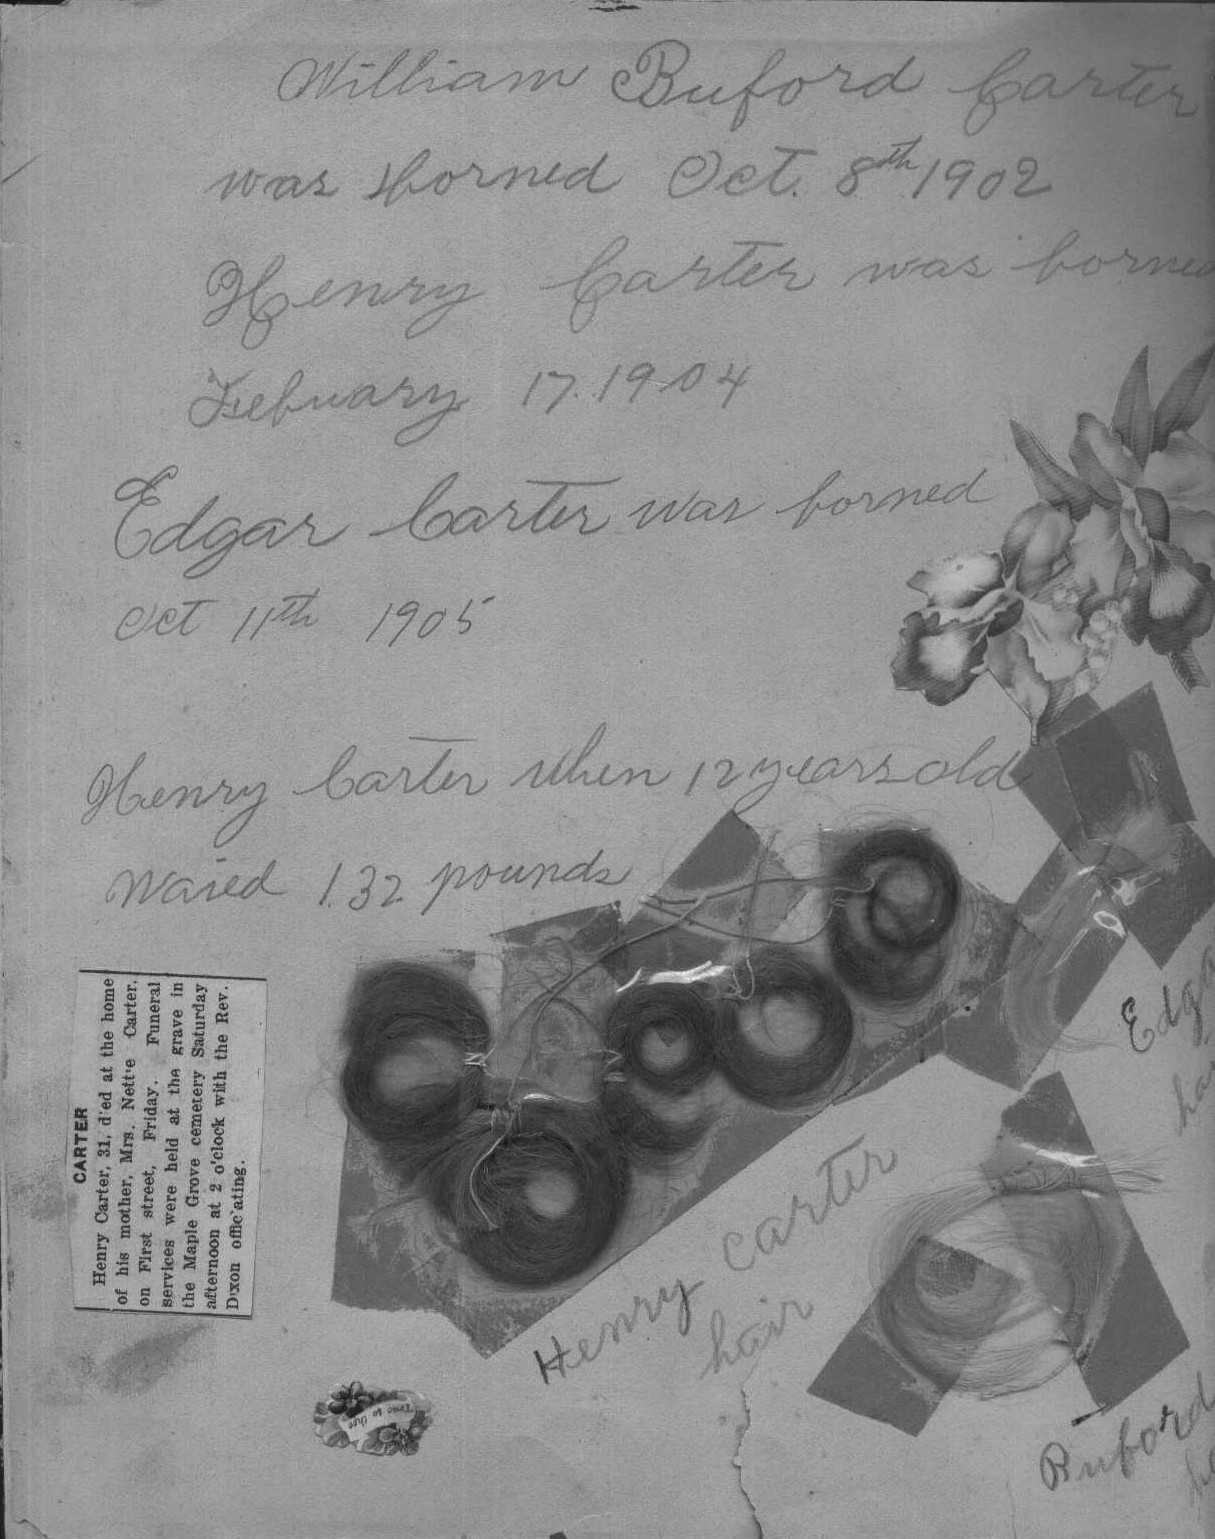 William Buford Carter
was borned Oct. 8th 1902
Henry Carter was borned
Febuary 17. 1904
Edgar Carter was borned
Oct 11th 1905
Henry Carter when 12 years old
Waied 132 pounds
CARTER
Henry Carter, 31, d'ed at the home
of his mother, Mrs. Nett'e Carter,
on First street, Friday. Funeral
services were held at the grave in
the Maple Grove cemetery Saturday
afternoon at 2 o'clock with the Rev.
Dixon offic'ating.
Edga
ha
Henry Carter
hair
Buford
ha
True to thee